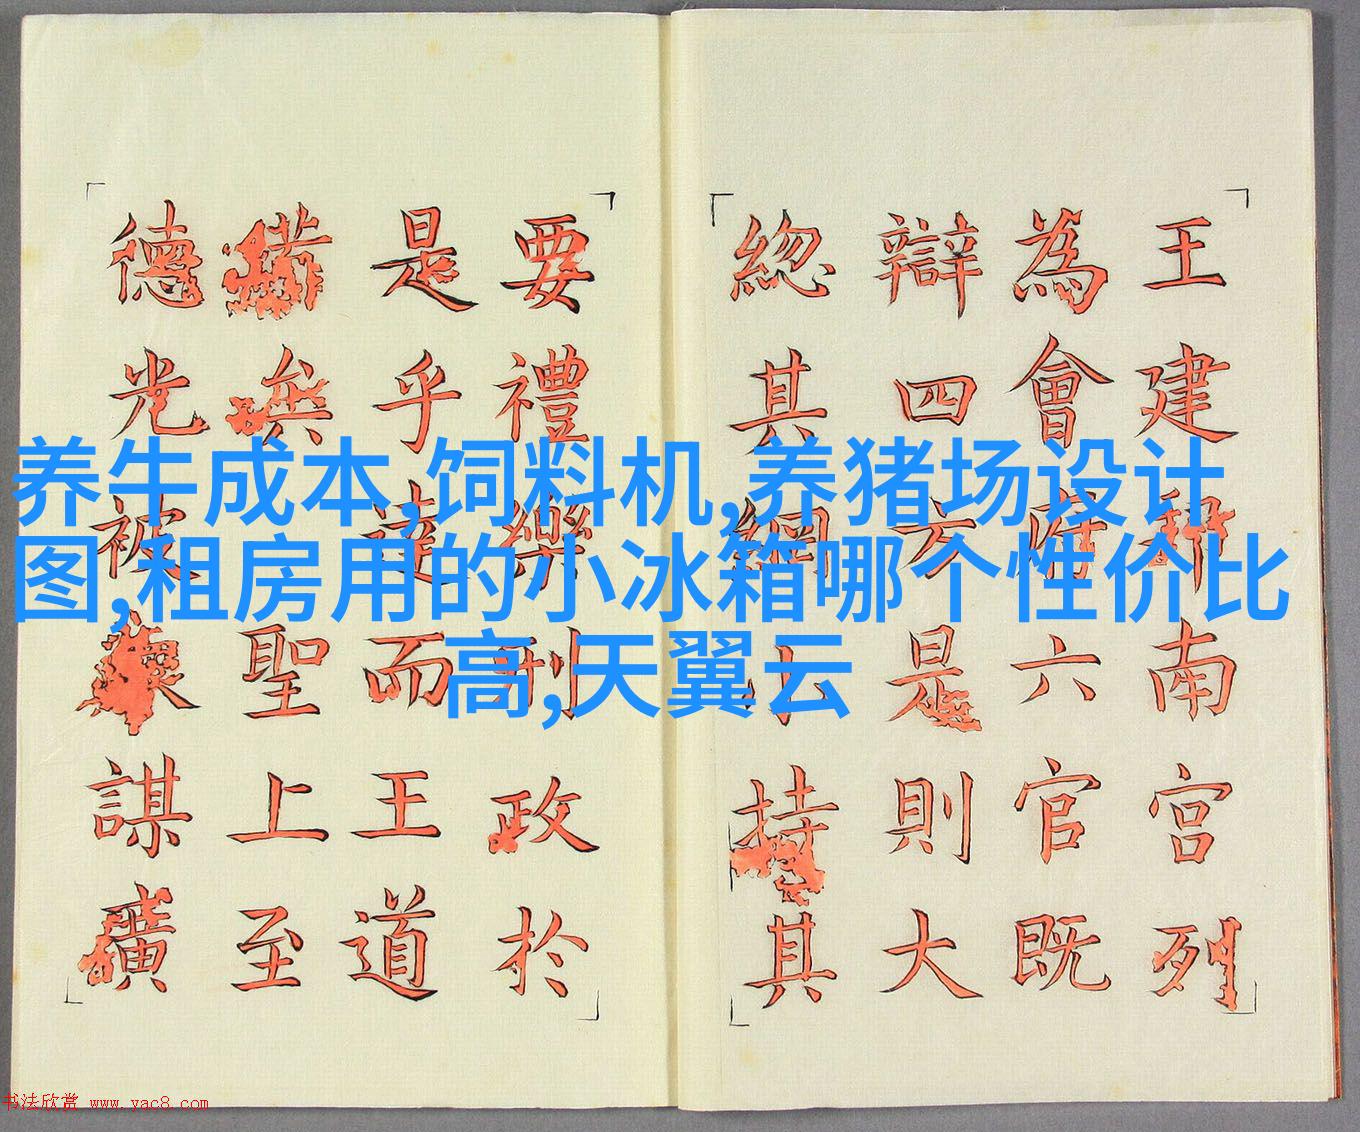 养牛成本,饲料机,养猪场设计
图,租房用的小冰箱哪个性价比
高,天翼云
王建邦南宫列
為會府六官既
辯四方是則大
緫其綱小持其
要禮樂刑政於
是乎達而王道
矣聖上至
德光被謀
书法欣赏 www.yac8.com